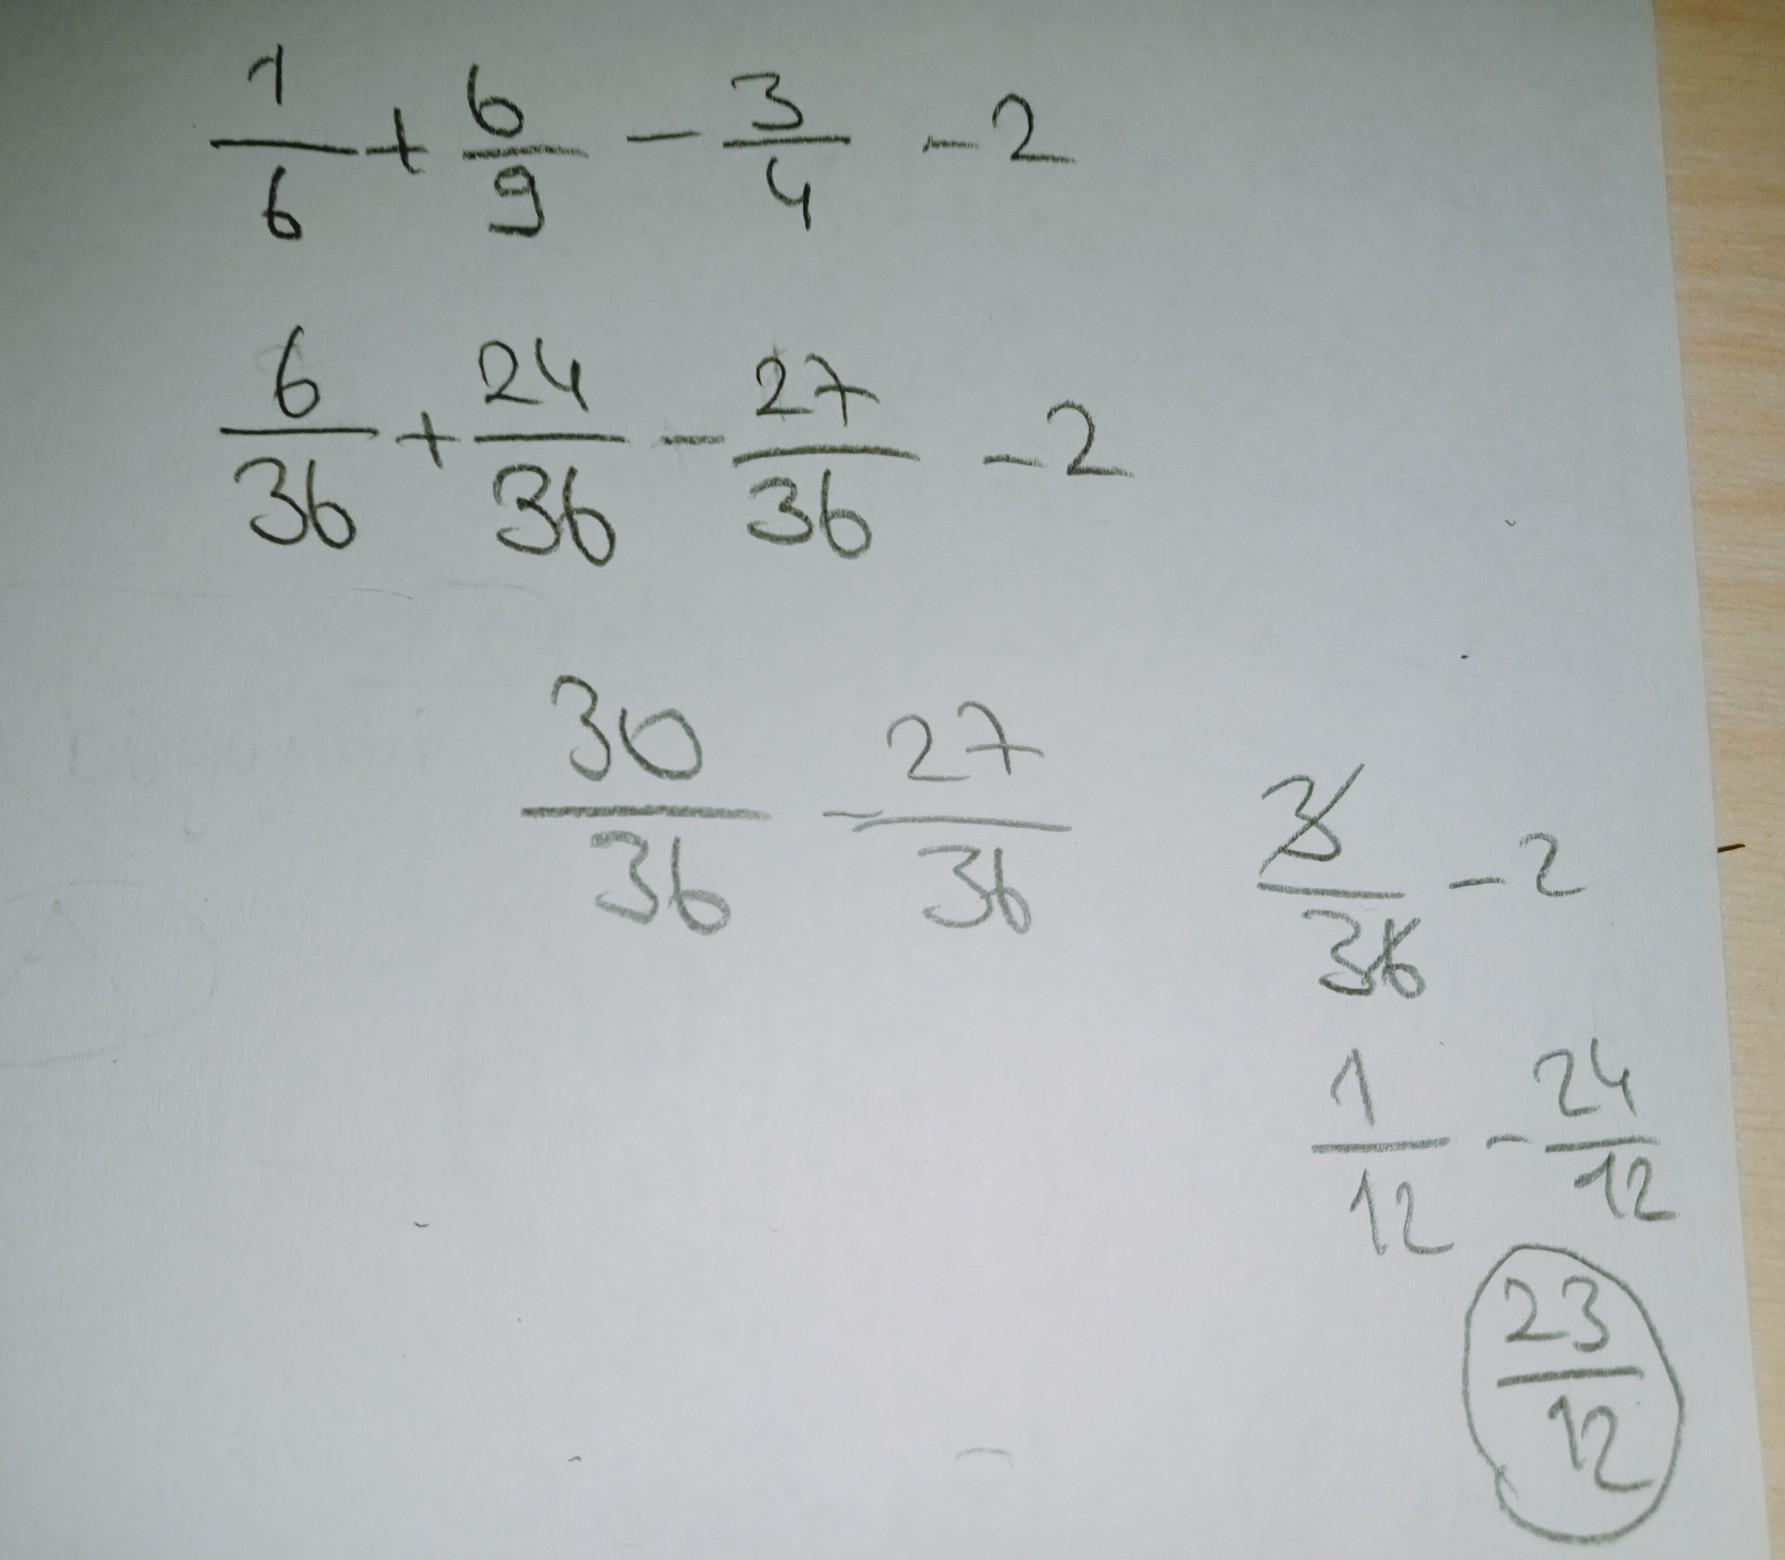 1/6 + 6/9 - 3/4 - 2
6/36 + 24/36 - 27/36 - 2
30/36 - 27/36
3/36 - 2
1/12 - 24/12
23/12